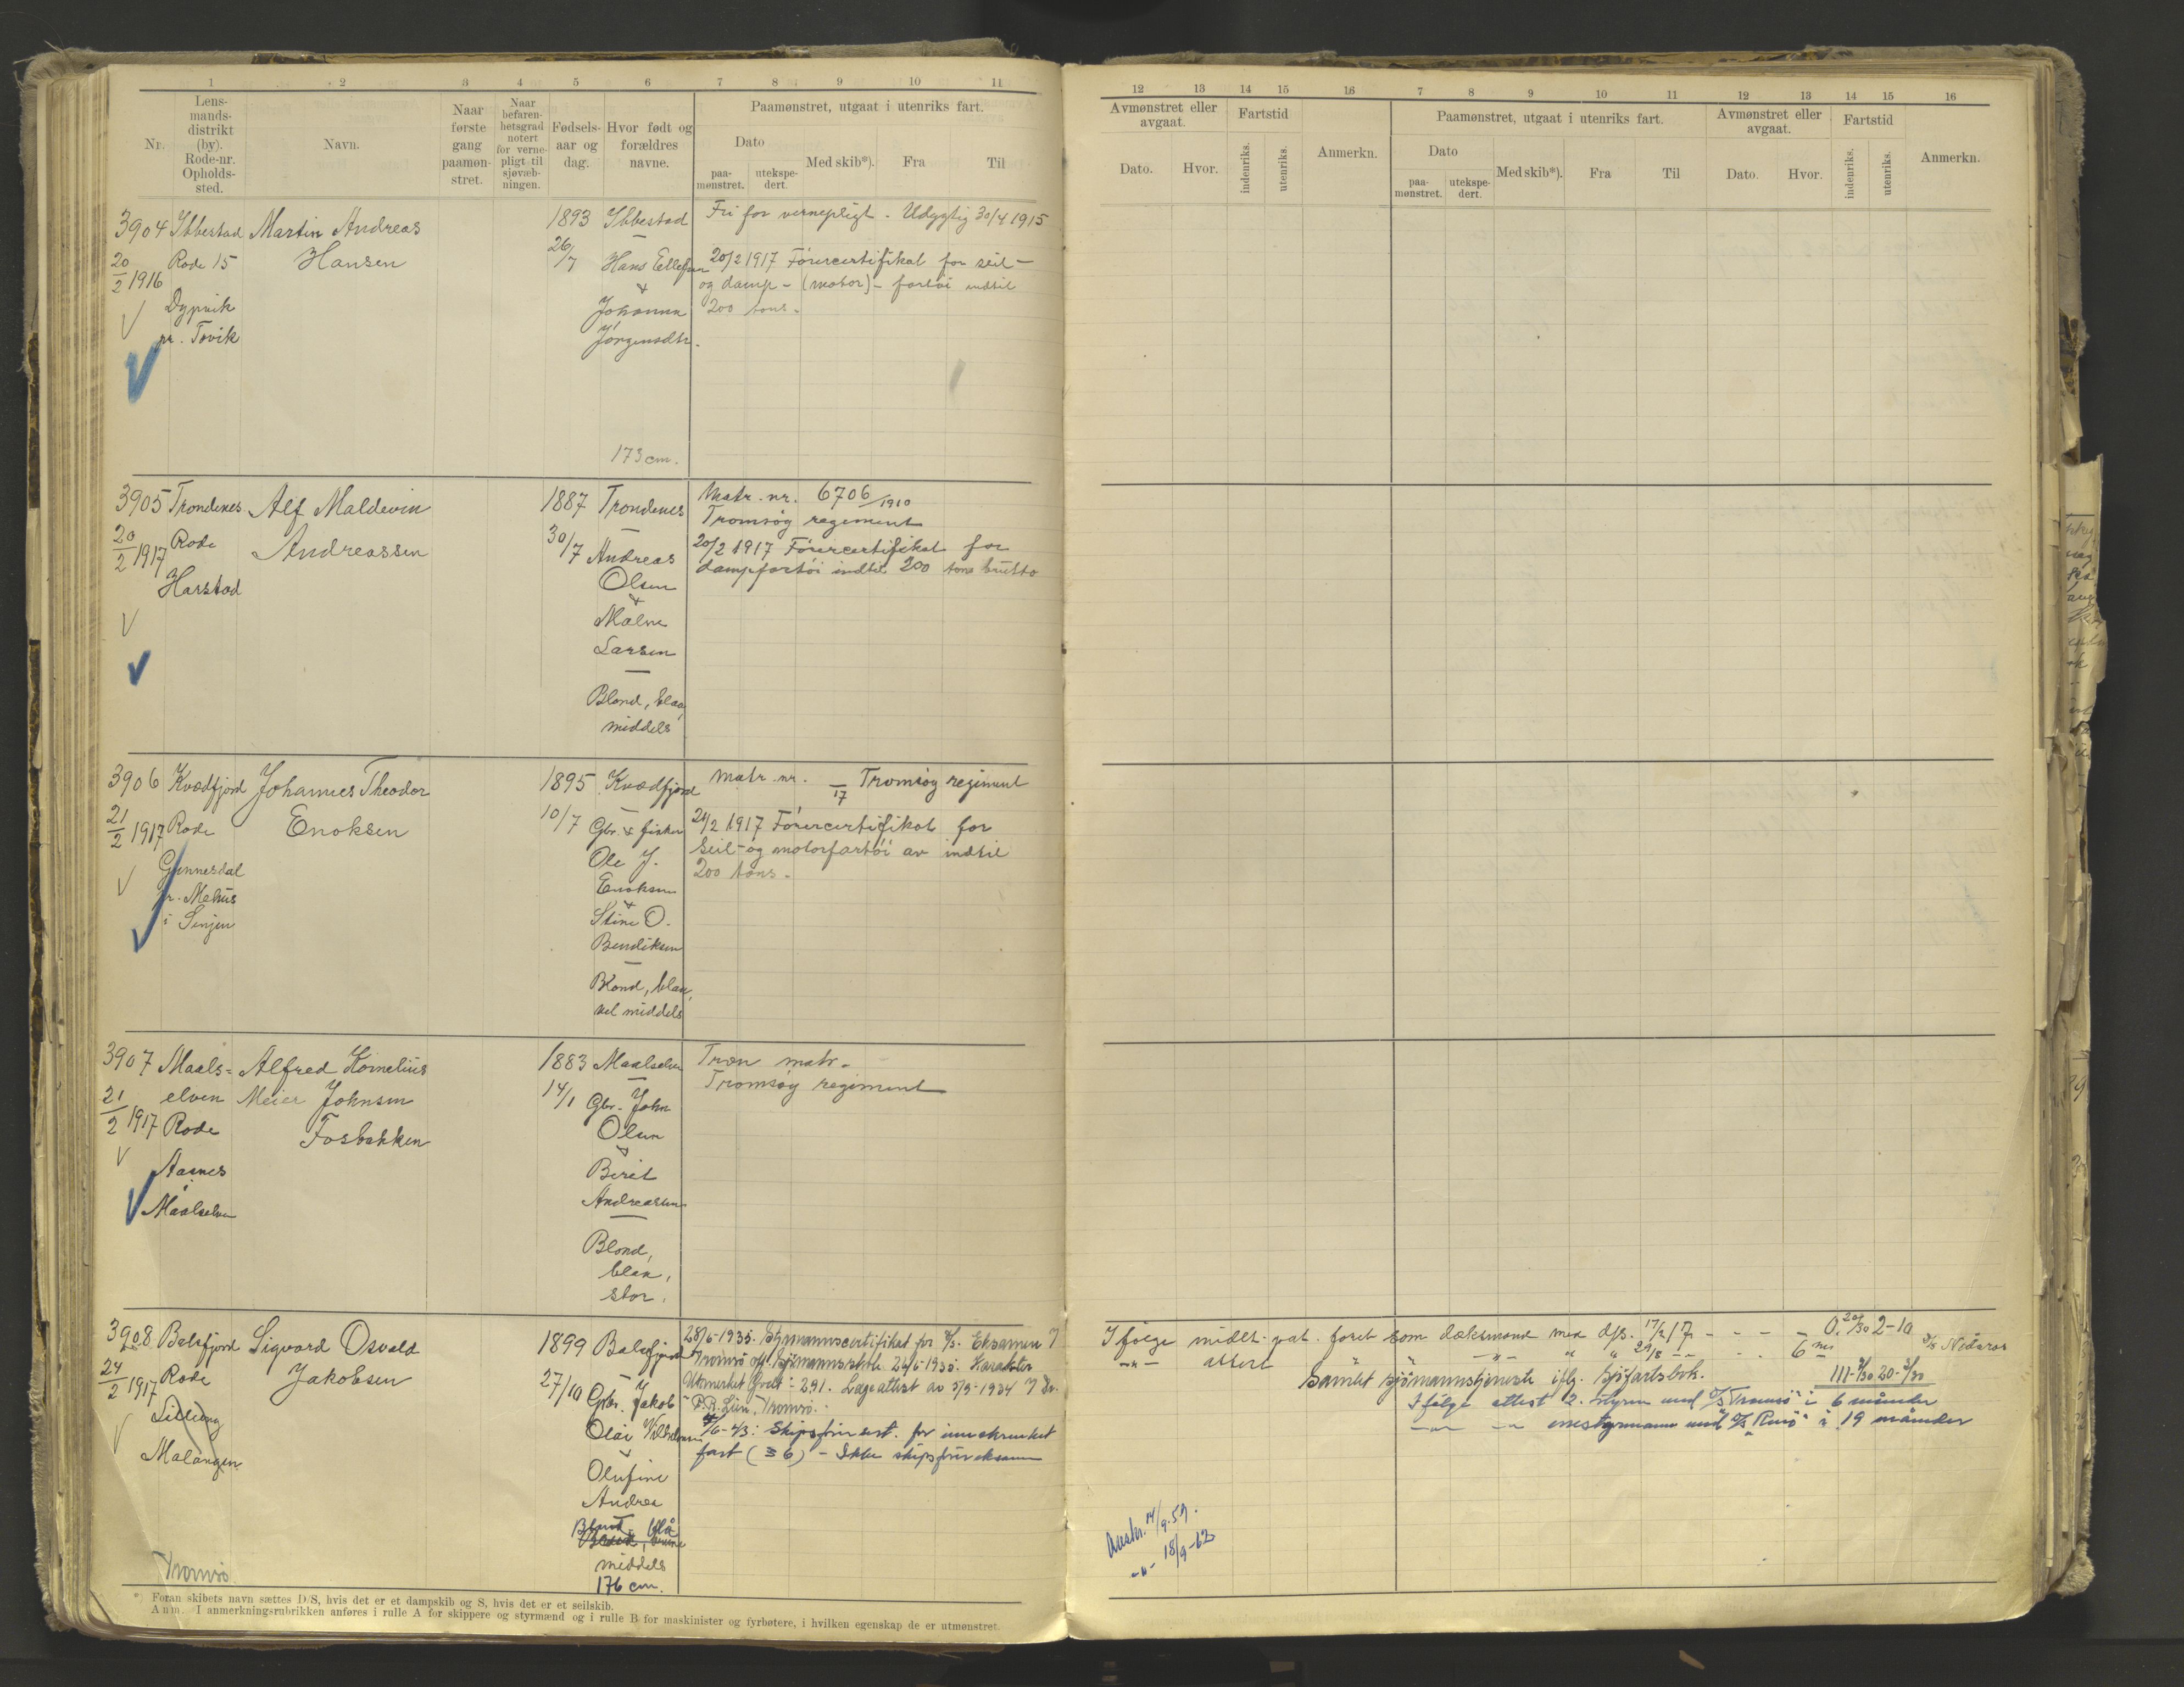 1 2 3 4 5 6 7 8 9 10 11
Nr.
Lens-
mands-
distrikt
(by).
Rode-nr.
Opholds-
sted.
Navn.
Naar
første
gang
paamøn-
stret.
Naar
befaren-
hetsgrad
notert
for verne-
pligt til
sjøvæb-
ningen.
Fødsels-
aar og
dag.
Hvor født og
forældres
navne.
Paamønstret, utgaat i utenriks fart.
Dato
paa-
mønstret.
utekspe-
dert.
Med skib*).
Fra
Til
3904 Ibbestad Martin Andreas 1893 Ibbestad Fri for vernepligt. Udygtig 30/4 1915
20/2 1916 Rode 15 Hansen 26/7 Hans Ellefsen 20/2 1917 Førercertifikat for seil-
& og damp- (motor)- fartøi indtil
Dypvik Johanna 200 tons.
pr. Tovik Jørgensdtr.
173 cm.
3905 Trondenes Alf Maldevin 1887 Trondenes Matr. nr. 6706/1910
Tromsøy regement
20/2 1917 Rode Andreassen 30/7 Andreas 20/2 1917 Førercertifikat for
Harstad Olsen dampfartøi indtil 200 tons brutto
&
Malne
Larsen
Blond, blaa,
middels
3906 Kvædfjord Johannes Theodor 1895 Kvædfjord Matr. nr. /17 Tromsøy regiment
21/2 1917 Rode Enoksen 10/7 Gbr. & fisker 21/2 1917 Førercertifikat for
Gunnesdal Ole J. seil- og motorfartøi av indtil
pr. Mehus Enoksen 200 tons.
i Senjen &
Stine O.
Bendiksen
Blond, blaa,
vel middels
3907 Maals- Alfred Kornelius 1883 Maalselven Træn matr.
21/2 1917 elven Meier Johnsen 14/1 Gbr. John Tromsøy regiment
Rode Fosbakken Olsen
&
Aanes Berit
Maalselven Andreassen
Blond,
blaa,
stor.
3908 Balsfjord Sigvard Osvald 1899 Balsfjord 28/6-1935. Styrmannscertifikat for Eksamen
24/2 1917 Rode Jakobsen 27/10 Gbr. Jakob Tromsø off. sjömannsskole 26/6-1935. Karakter
Malangen Olai Utmerket Godt: 291. Lægeattest av 5/3-1934
Tromsø.
& 6-43: Skipsförersert. for innskrenket
Olufine fart (§ 6) - Ikke skipsförereksamen
Andrea
Blond, blå
middels
Tromsø 176 cm.
*) Foran skibets navn sættes D/S, hvis det er et dampskib og S, hvis det er et seilskib.
Anm. I anmerkningsrubrikken anføres i rulle A for skippere og styrmænd og i rulle B for maskinister og fyrbøtere, i hvilken egenskap de er utmønstret.
12 13 14 15 16 7 8 9 10 11 12 13 14 15 16
Avmønstret eller
avgaat.
Dato.
Hvor.
Fartstid
indenriks.
utenriks.
Anmerkn.
Paamønstret, utgaat i utenriks fart.
Dato
paa-
mønstret.
utekspe-
dert.
Med skib*).
Fra
Til
Avmønstret eller
avgaat.
Dato.
Hvor.
Fartstid
indenriks.
utenriks.
Anmerkn.
I følge midlt. pat. faret som dæksmand med d/s. 17/2 17 - - - - 0. 20/30 2-10
-"- attest -"- " " 29/8 - - - - 6 mdr D/S Nidaros
Samlet sjömannstjeneste iflg. sjöfartsbok.
I følge attest 2. styrm. med D/S Tromsö i 6 måneder
-"- -"- enestyrmann med i 19 måneder
14/9-59.
-"- 18/9-62